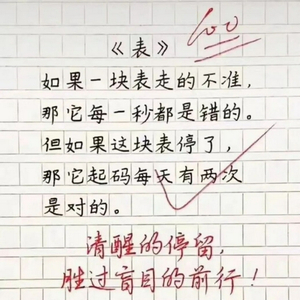 100
《表》
如果一块表走的不准，
那它每一秒都是错的。
但如果这块表停了，
那它起码每天有两次
是对的。
清醒的停留，
胜过盲目的前行！